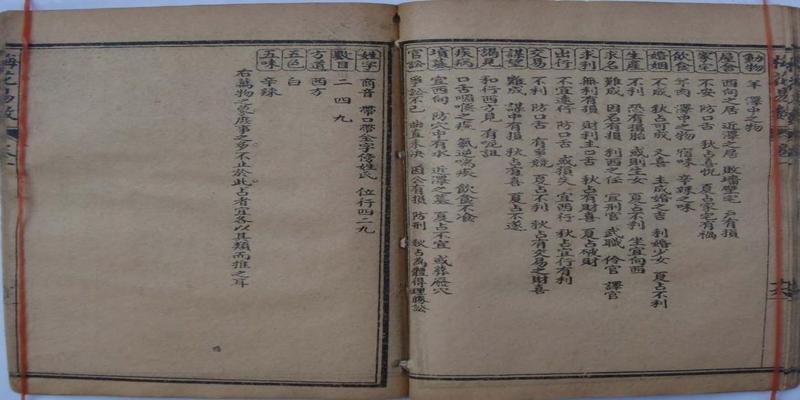 動物 羊 澤中之物
屋舍 西向之居 近澤之居 敗墻壁宅 戶有損
家宅 不安 防口舌 秋占喜悅 夏占家宅有禍
飲食 羊肉 澤中之物 宿味 辛辣之味
婚姻 不成 秋占可成 又喜 主成婚之吉 利婚少女 夏占不利
生產 不利 恐有損胎 或則生女 夏占不利 坐宜向西
求名 難成 因名有損 利西之任 宜刑官 武職 伶官 譯官
求利 無利有損 財利主口舌 秋占有財喜 夏占破財
出行 不宜遠行 防口舌 或損失 宜西行 秋占宜行有利
交易 不利 防口舌 有爭競 夏占不利 秋占有交易之財喜
謀望 難成 謀中有損 秋占有喜 夏占不遂
謁見 利行西方見 有咒詛
疾病 口舌咽喉之疾 氣逆喘疾 飲食不飧
墳墓 宜西向 防穴中有水 近澤之墓 夏占不宜 或葬廢穴
官訟 爭訟不已 曲直未決 因公有損 防刑 秋占為體得理勝訟
姓字 商音 帶口帶金字傍姓氏 位行四二九
數目 二 四 九
方道 西方
五色 白
五味 辛辣
右萬物之象庶事之多不止於此占者宜各以其類而推之耳